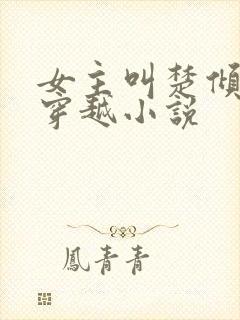 女主叫楚倾
穿越小说
鳳青青